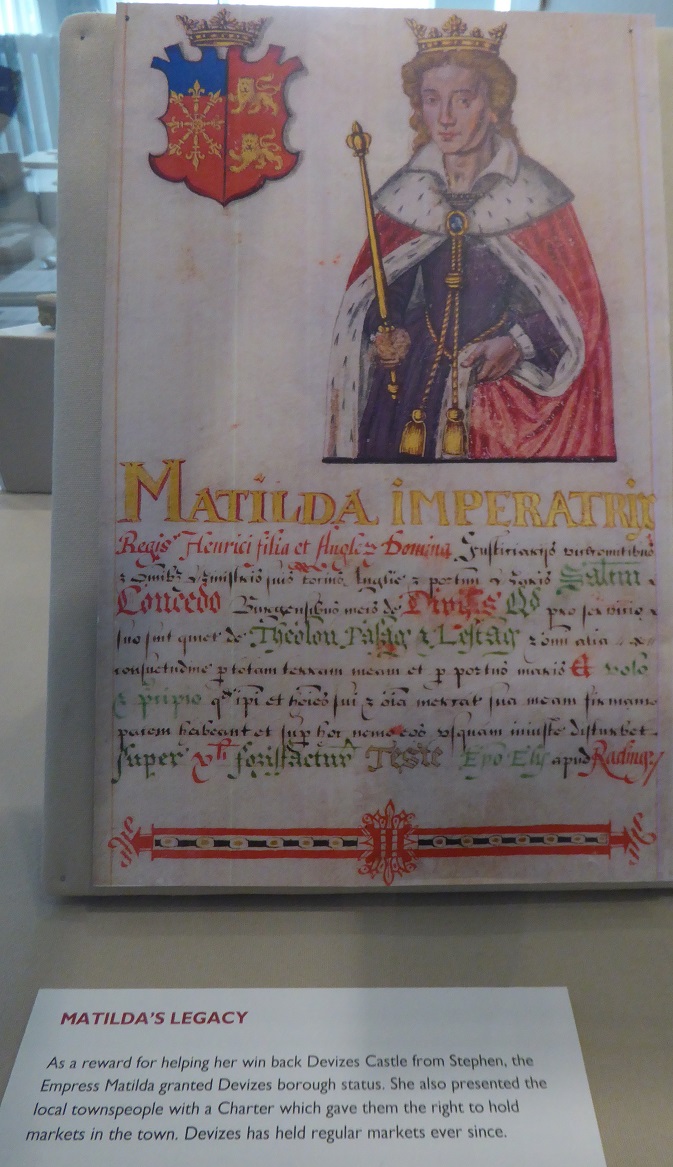 MATILDA IMPERATRIX
Regis Henrici filia et Angloꝝ Domina
suis Anglie Saltm
Concedo Burgensibus meis de Divisis Qd
sint quiet de Theolon Passag & Lestag alia
consuetudine p totam terram meam et p portus maris Et volo
& pcipio qd ipi et
pacem habeant et sup hoc nemo eos iniuste disturbet
super xli forisfactur Teste Epo Ely apud Rading
MATILDA'S LEGACY
As a reward for helping her win back Devizes Castle from Stephen, the
Empress Matilda granted Devizes borough status. She also presented the
local townspeople with a Charter which gave them the right to hold
markets in the town. Devizes has held regular markets ever since.